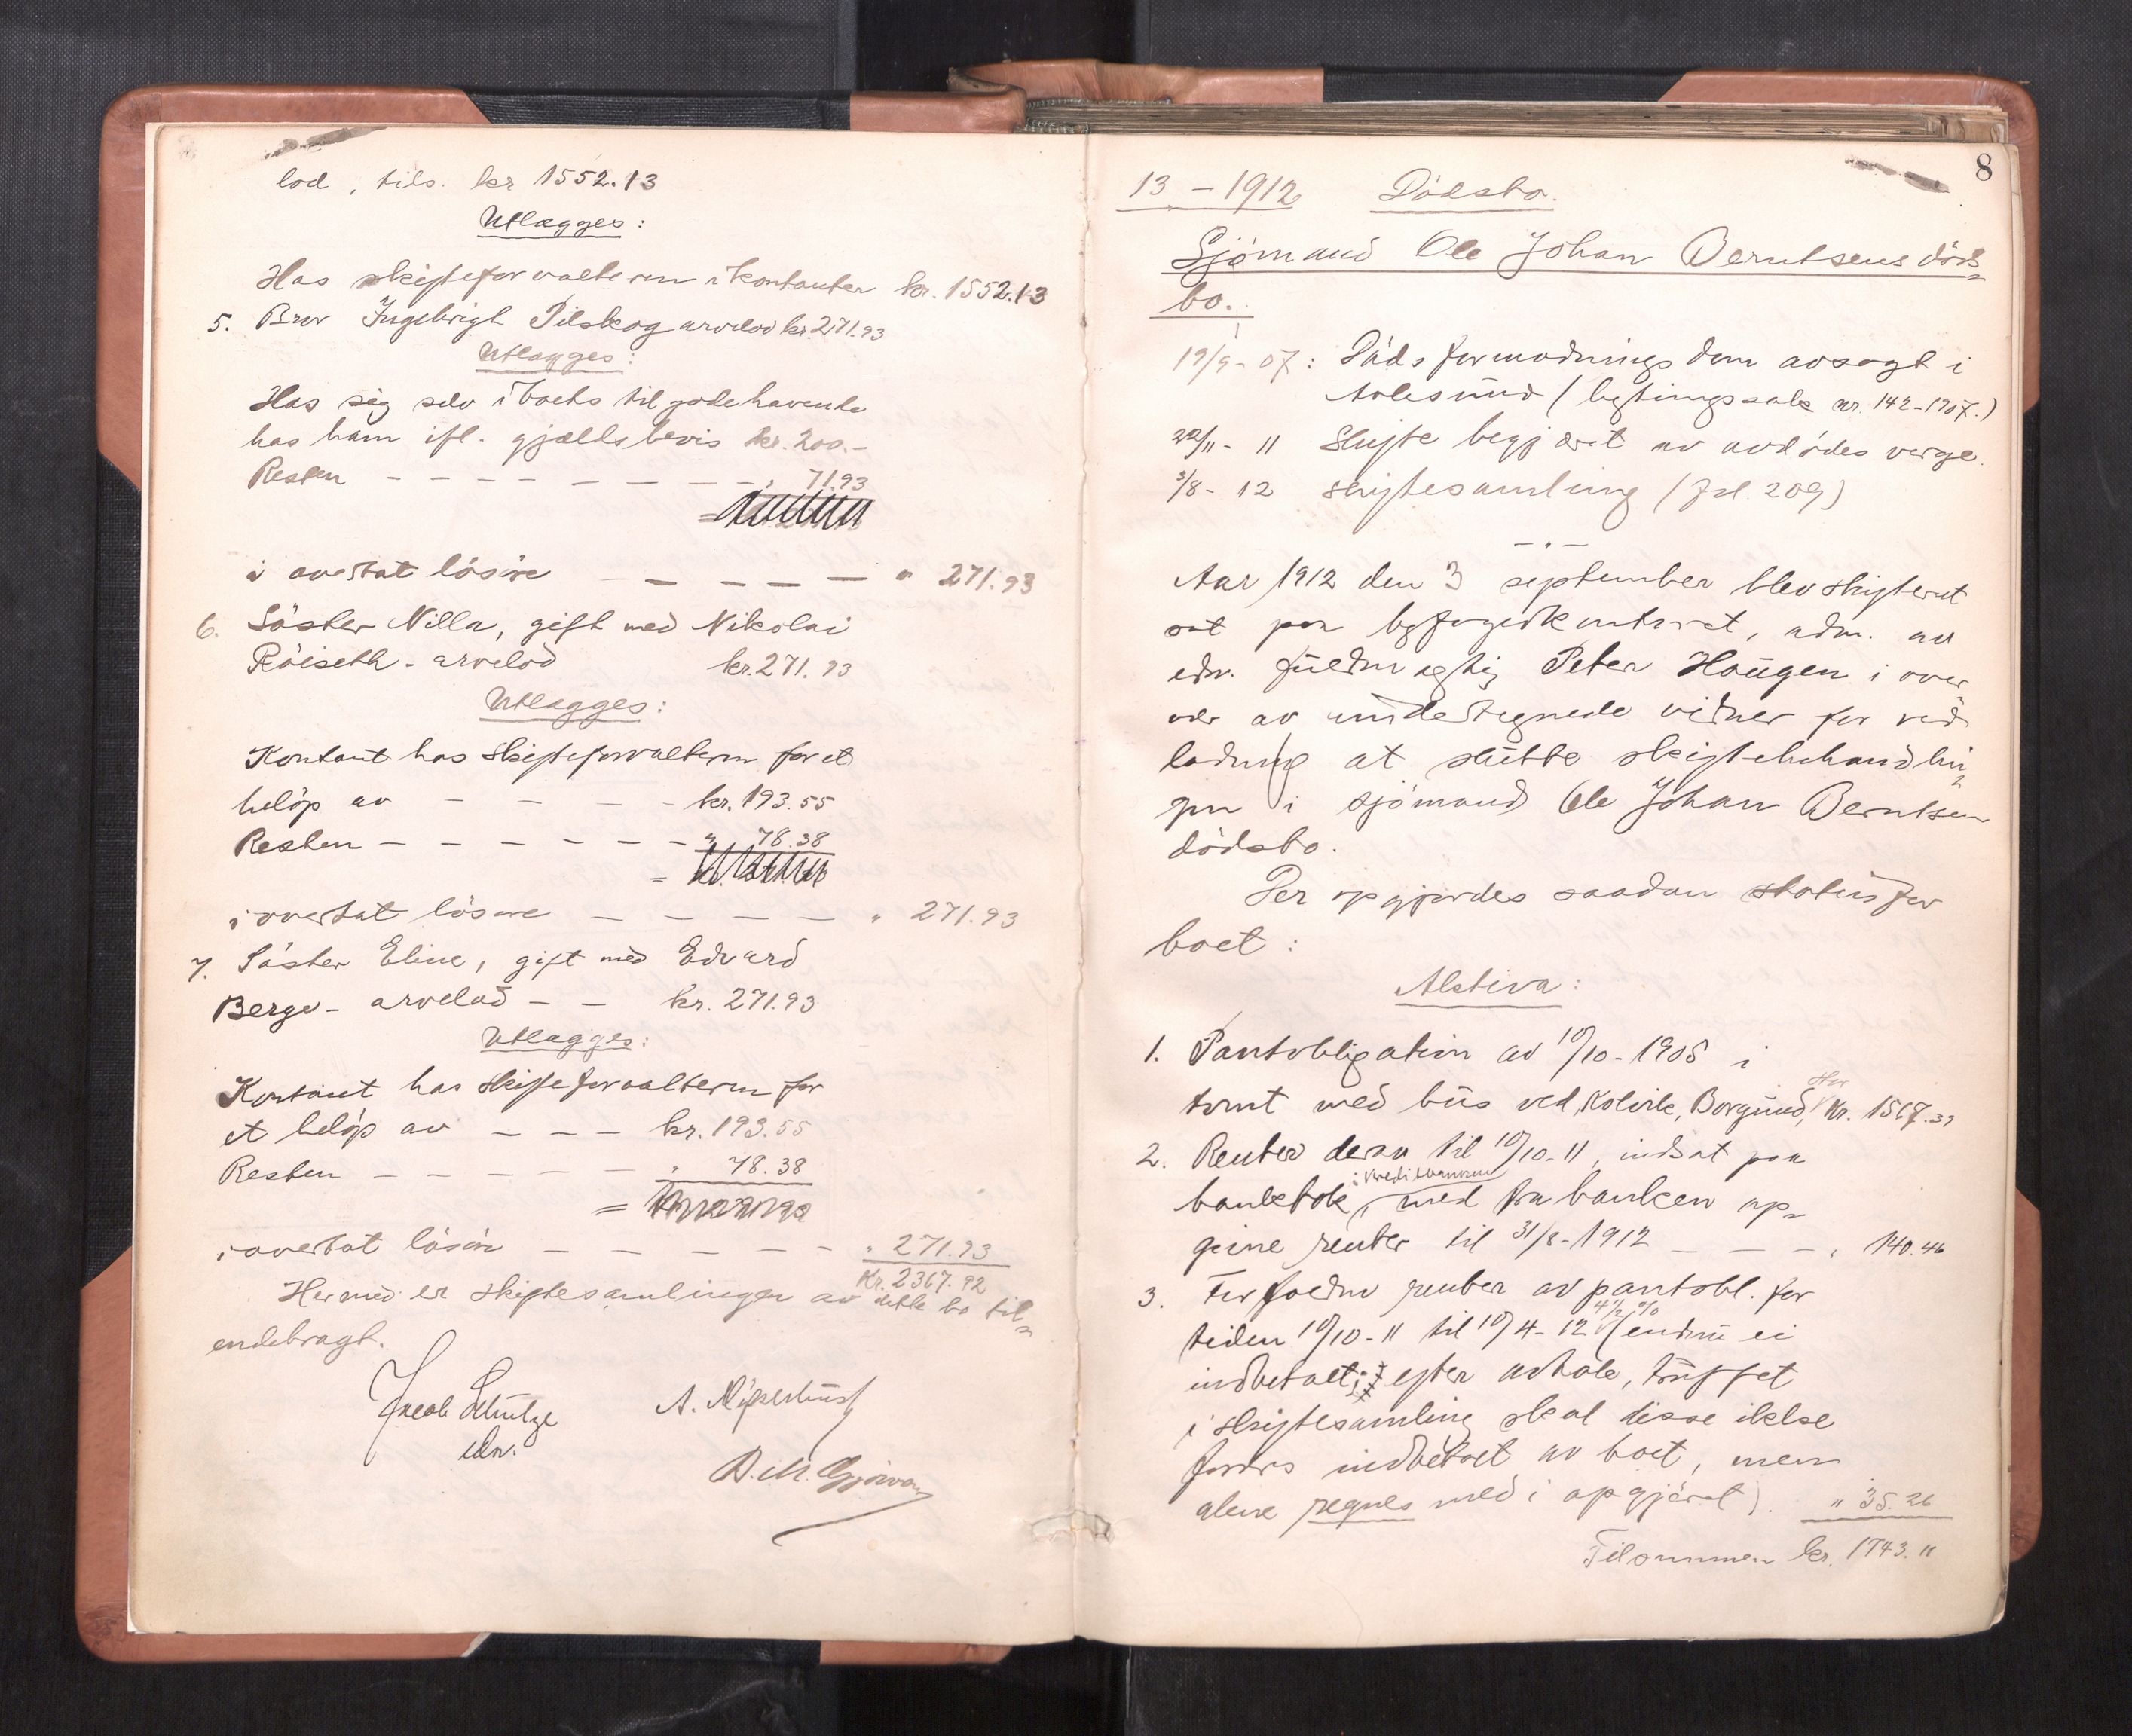 lod, tils. kr 1552.13
Utlægges:
Hos skifteforvalteren i kontanter kr. 1552.13
5. Bror Ingebrigt Pilskog arvelod kr. 271.93
Utlægges:
Hos sig selv i boets tilgodehavende
hos ham ifl. gjældsbevis kr. 200.-
Resten - - - - - - - - - " 71.93
i overtat løsøre - - - - - " 271.93
6. Søster Nilla, gift med Nikolai
Røiseth - arvelod kr. 271.93
Utlægges:
Kontant hos skifteforvalteren for et
beløp av - - - - kr. 193.55
Resten - - - - - - " 78.38
i overtat løsøre - - - - " 271.93
7. Søster Eline, gift med Edvard
Berge - arvelod - - kr. 271.93
Utlægges:
Kontant hos skifteforvalteren for
et beløp av - - - kr. 193.55
Resten - - - - - " 78.38
i overtat løsøre - - - - - - " 271.93
Kr. 2367.92
Hermed er skiftesamlingen av dette bo til-
endebragt.
Jacob Schutze
edv.
A.
B. M. Gjørva
8
13 - 1912 Dødsbo.
Sjømand Ole Johan Berntsens døds-
bo.
19/9 - 07: Dødsformodningsdom avsagt i
Aalesund (bytingssak nr. 142-1907.)
22/11 - 11 Skifte begjæret av avdødes verge.
3/8 - 12 skiftesamling (fol. 209)
Aar 1912 den 3 september blev skifteret
sat paa byfogedkontoret, adm. av
edv. fuldmægtig Peter Haugen i over
vær av undertegnede vidner for ved
ladning at slutte skiftebehandlin-
gen i sjømand Ole Johan Berntsen
dødsbo.
Der opgjordes saadan status for
boet:
Aktiva:
1. Pantobligation av 10/10 - 1905 i
tomt med hus ved Kolvik, Borgund, Kr. 1567.39
2. Renter derav til 10/10 - 11, indsat paa
bankbok i Kreditbanken, med fra banken op-
givne renter til 31/8 - 1912 - - - " 140.46
3. Forfaldne renter av pantobl. for
tiden 10/10 - 11 til 10/4 - 12 4 1/2 % (endnu ei
indbetalt; efter avtale, truffet
i skiftesamling skal disse ikke
fordres indbetalt av boet, men
alene regnes med i opgjøret). " 35.26
Tilsammen kr. 1743.11